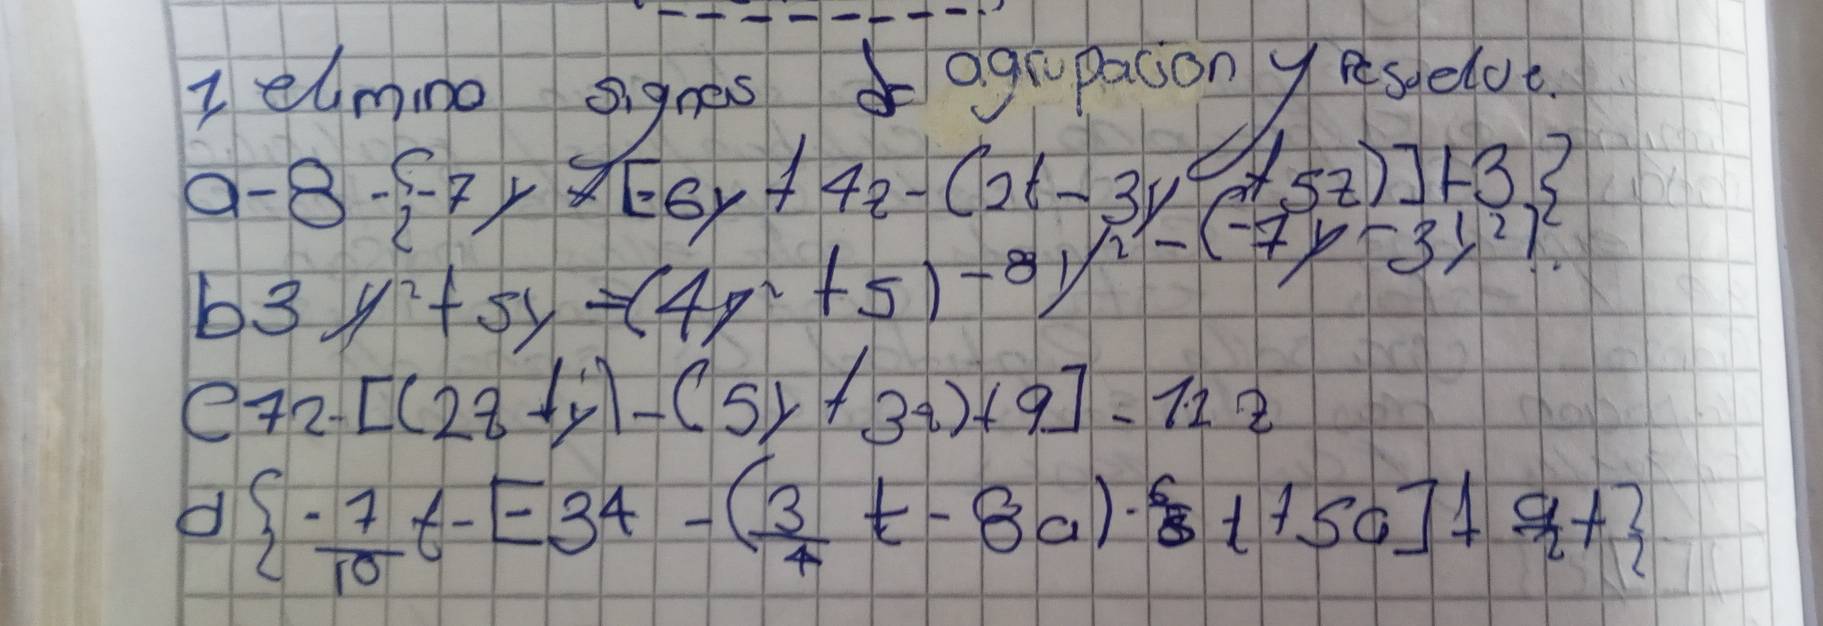 1 elimino signos de agrupacion y resuelve.
a - 8 - {-7y + [-6y + 4z - (2t - 3y + 5z)] + 3}
b 3y² + 5y - (4y² + 5) - 8y² - (-7y - 3y²).
c 7z - [(2z + y) - (5y + 3z) + 9] - 11z
d {-7/10 t - [-34 - (3/4 t - 8a) - t + 5a] + t}